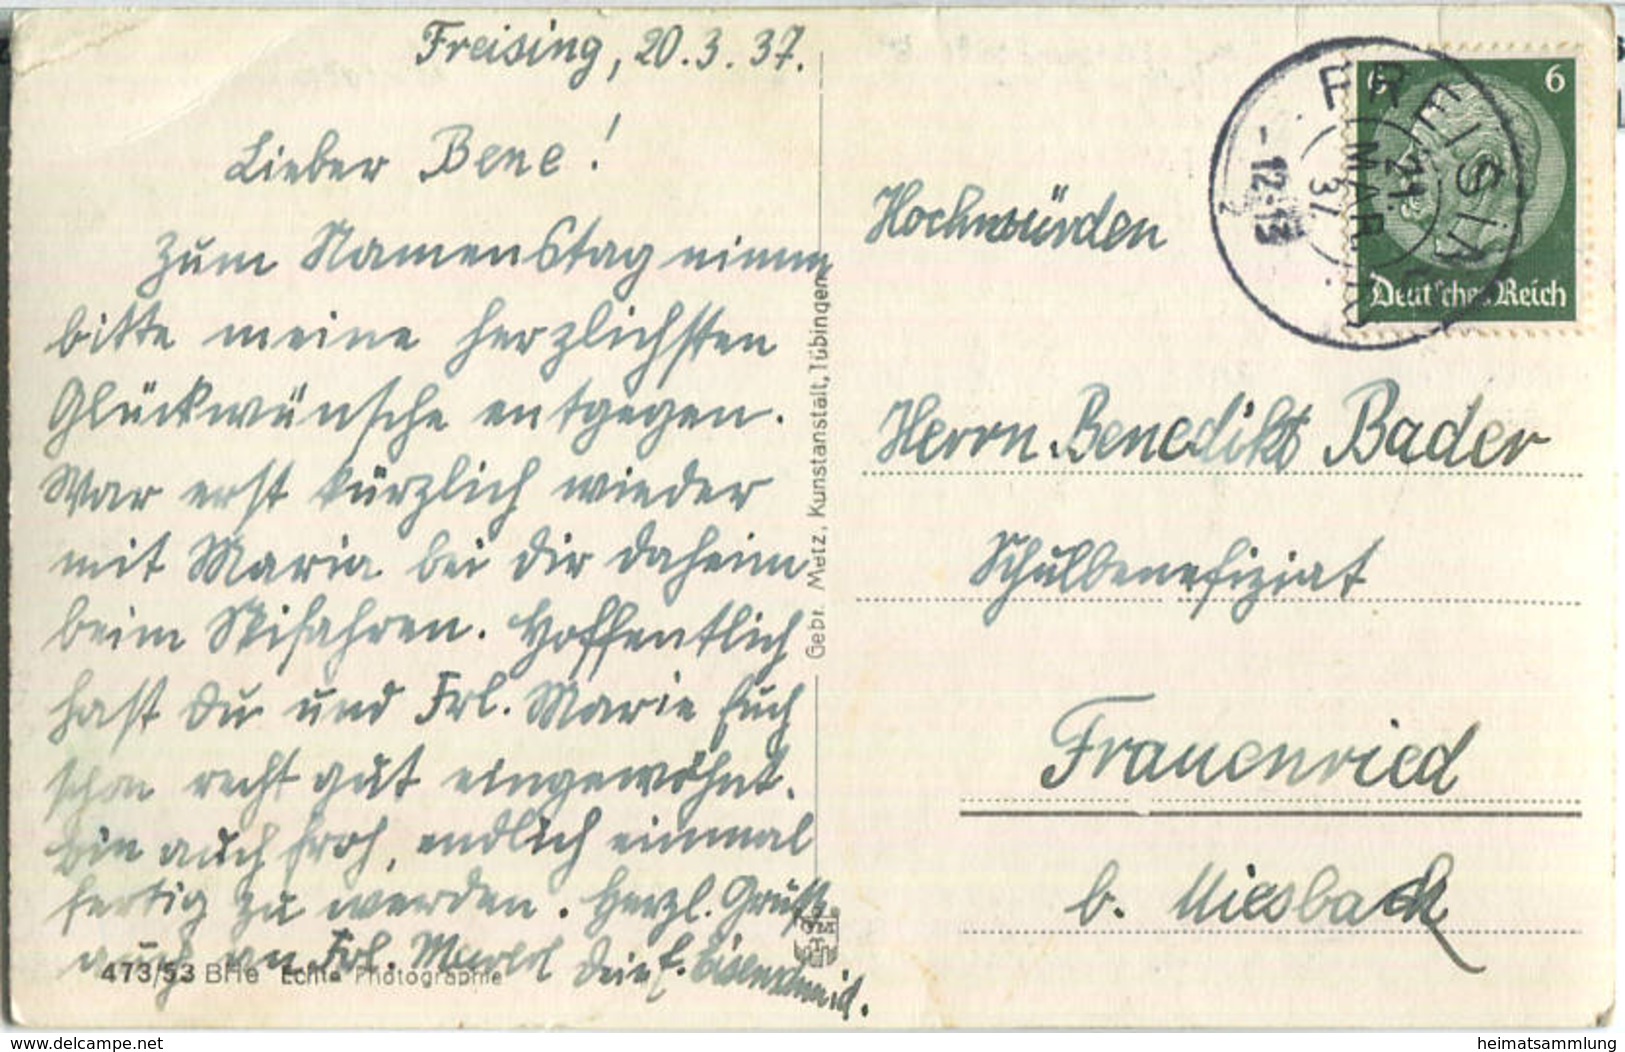 Freising, 20.3.37.
Lieber Bene!
Zum Namenstag nimm
bitte meine herzlichsten
Glückwünsche entgegen.
War erst kürzlich wieder
mit Maria bei Dir daheim
beim Skifahren. Hoffentlich
hast Du und Frl. Marie Euch
schon recht gut eingewöhnt.
Bin auch froh, endlich einmal
fertig zu werden. Herzl. Grüße
auch an Frl. Dein
473/53 BHe Echte Photographie
Gebr. Metz, Kunstanstalt, Tübingen
FREISING
21. MAR. 37
12-13
6 6
Deutsches Reich
Hochwürden
Herrn Benedikt Bader
Schulbenefiziat
Frauenried
b. Miesbach
delcampe.net
heimatsammlung